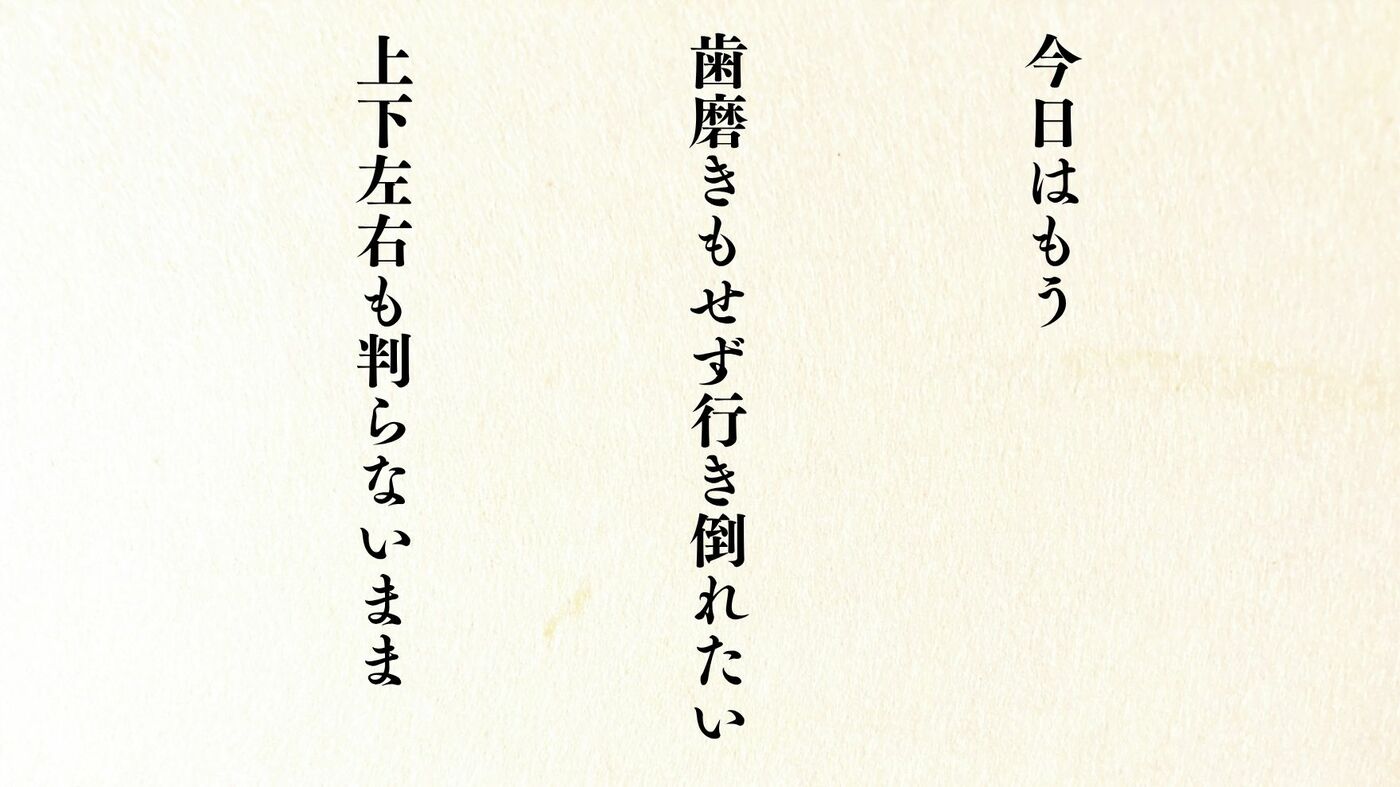 今日はもう
歯磨きもせず行き倒れたい
上下左右も判らないまま